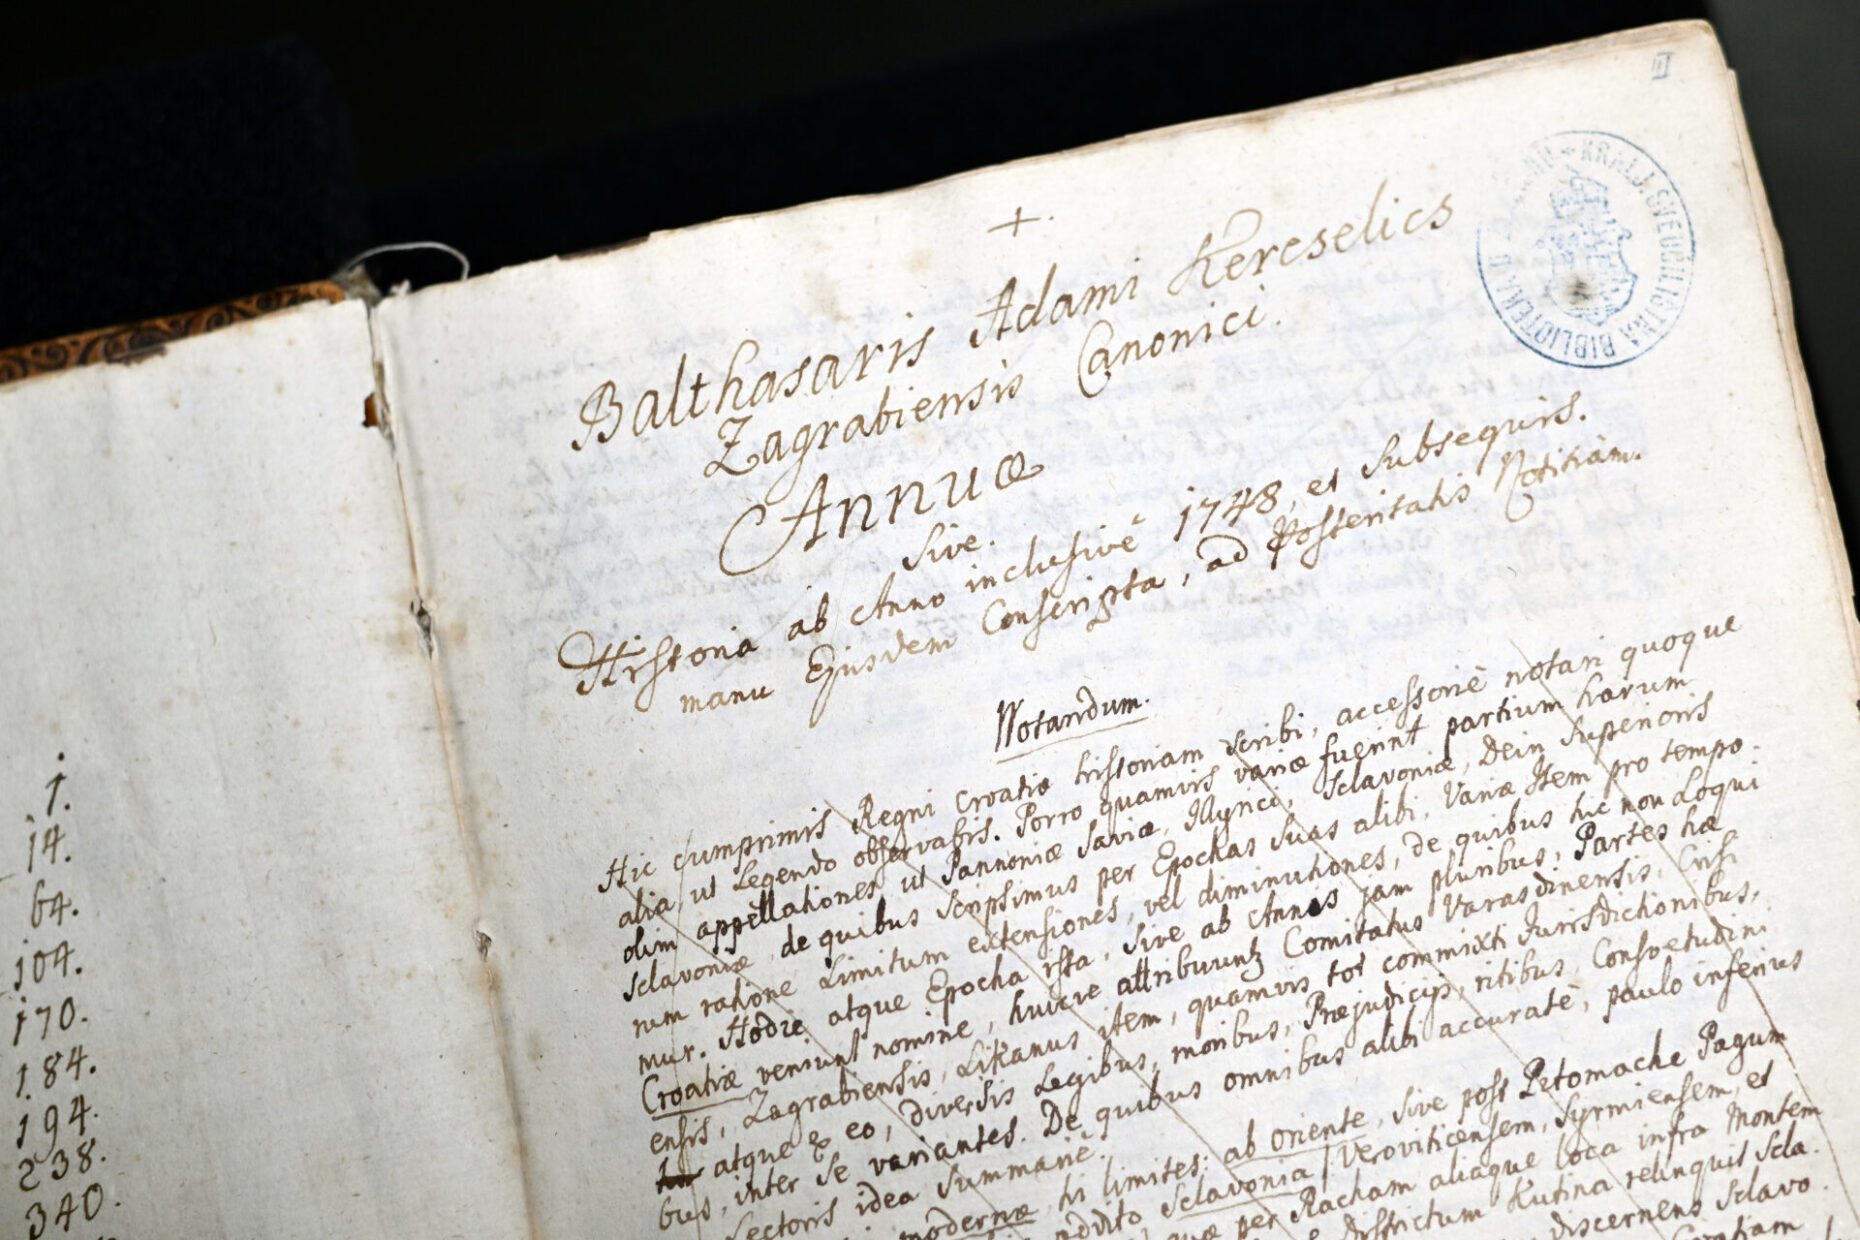 1.
14.
64.
104.
170.
184.
194.
238.
340.
II
KRALJ. SVEUČILIŠTNA BIBLIOTEKA U
+.
Balthasaris Adami Kercselics
Zagrabiensis Canonici.
Annuæ
sive.
Historia ab Anno inclusivè 1748, et subsequis.
manu Ejusdem Conscripta, ad Posteritatis Notitiam.
Notandum.
Hic cumprimis Regni Croatiæ historiam scribi, accessoriè notari quoque
alia, ut Legendo observabis. Porro quamvis variæ fuerint partium harum
olim appellationes, ut Pannoniæ Saviæ, Illyrici, Sclavoniæ, Dein Superioris
Sclavoniæ, de quibus scripsimus per Epochas suas alibi, Variæ Item pro tempo-
rum ratione Limitum extensiones, vel diminutiones, de quibus hic non Loqui
mur. Hodie atque Epocha ista, sive ab Annis jam pluribus, Partes hæ
Croatiæ veniunt nomine, huicve attribuuntur Comitatus Varasdinensis, Crisi
ensis, Zagrabiensis, Likanus item, quamvis tot commixti Jurisdictionibus,
atque ex eo, diversis Legibus, moribus, Præjudiciis, ritibus, Consvetudini
bus, inter se variantes. De quibus omnibus alibi accuratè, paulo inferius
Lectoris idea summariè.
modernæ hi limites: ab oriente, sive post Petomache Pagum
addito Sclavonia / Veroviticensem, Syrmiensem, et
quæ per Racham aliaque loca infra Montem
districtum Kutina relinquit Scla-
discernens Sclavo-